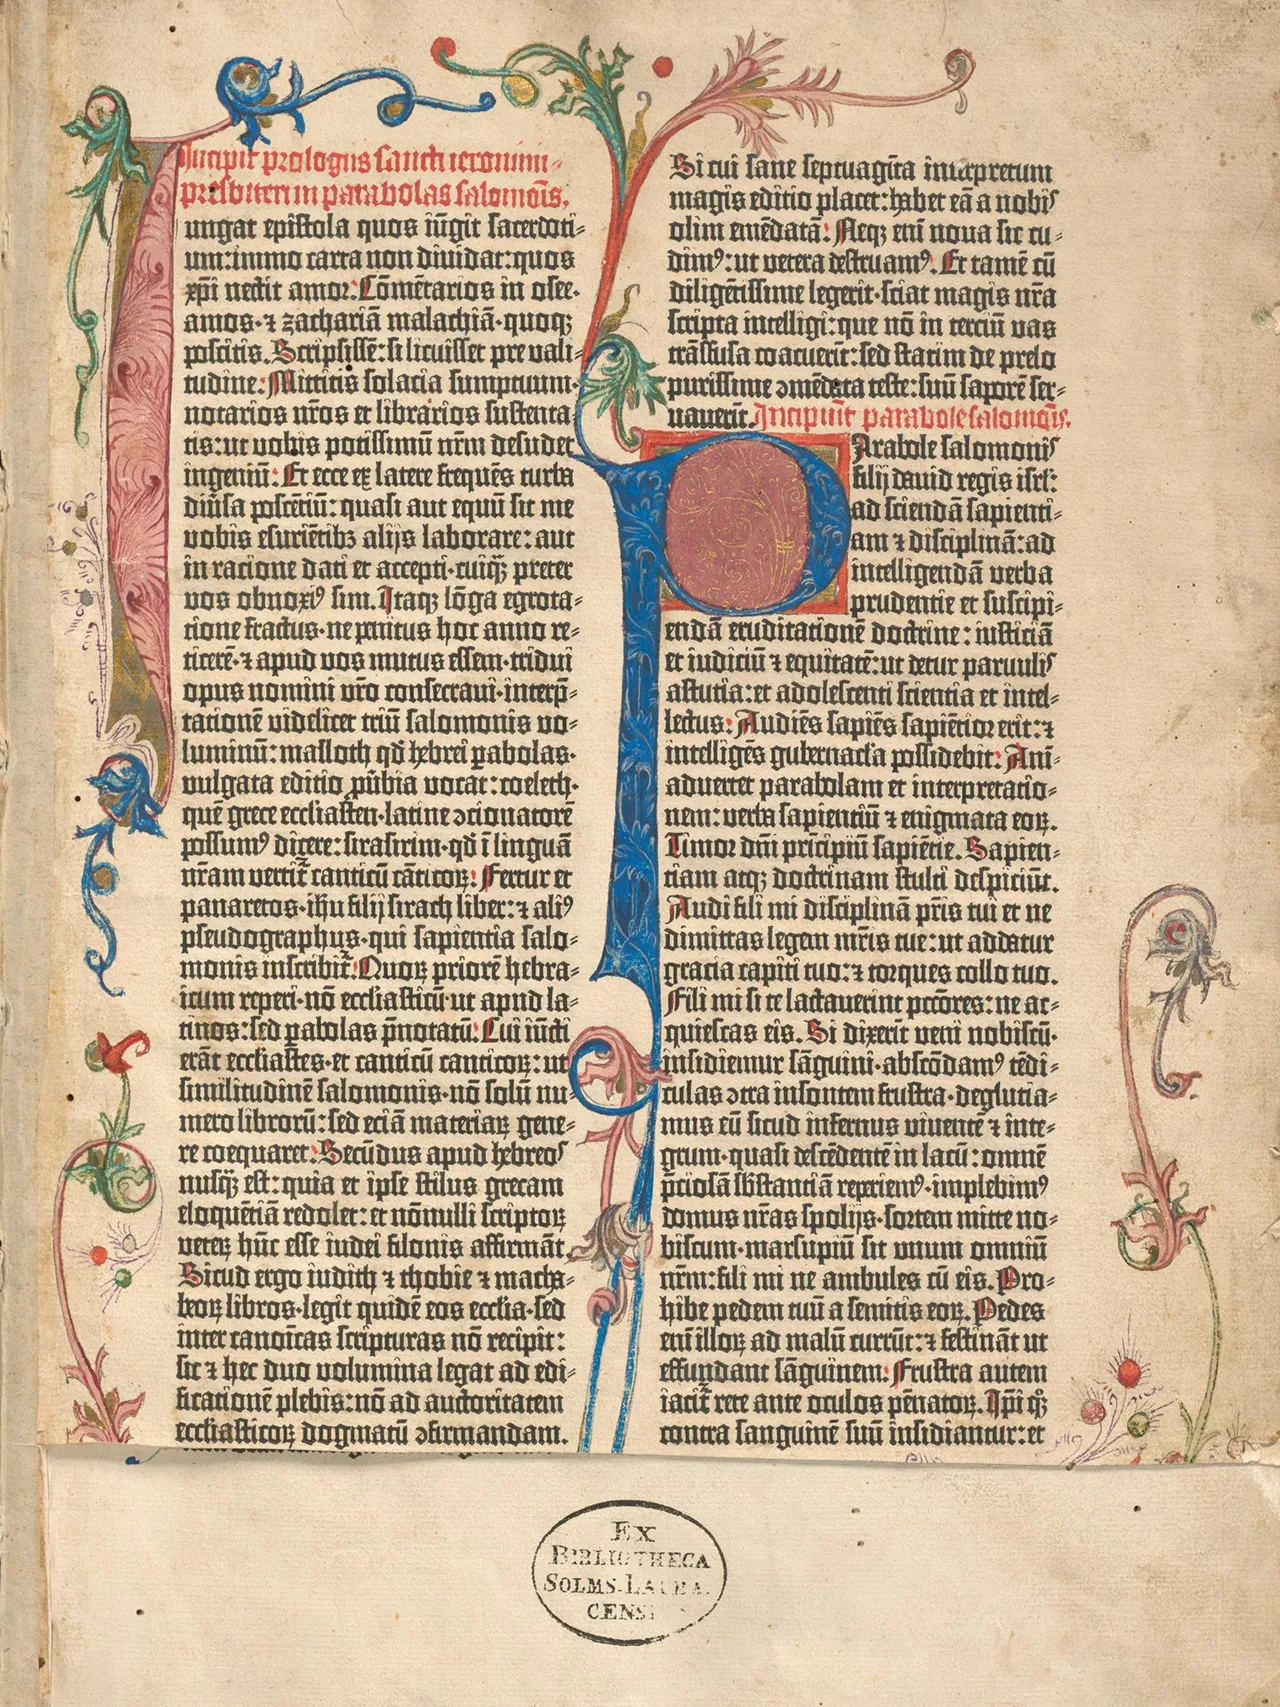 Incipit prologus sancti ieronimi
presbiteri in parabolas salomōis.
Iungat epistola quos iūgit sacerdoti-
um: immo carta non dividat: quos
xp̄i nectit amor. Cōmētarios in osee·
amos· ⁊ zachariā malachiā· quoqꝫ
poscitis. Scripsissē: si licuisset pre vali-
tudine: Mittitis solacia sumptuum·
notarios nr̄os et librarios sustenta-
tis: ut vobis potissimū nr̄m desudet
ingeniū: Et ecce ex latere frequēs turba
diūsa poscētiū: quasi aut equū sit me
vobis esuriētibꝫ alijs laborare: aut
in racione dati et accepti· cuiq̄ꝫ preter
vos obnoxiꝰ sim. Itaqꝫ lōga egrota-
tione fractus· ne penitus hoc anno re-
ticerē· ⁊ apud vos mutus essem· tridui
opus nomini vr̄o consecravi· interp̄-
tationē videlicet triū salomonis vo-
luminū: masloth qd̄ hebrei ꝑabolas·
vulgata editio ꝓv̄bia vocat: coeleth·
quē grece ecclīasten· latine ɔcionatorē
possumꝰ dicere: sirasirim· qd̄ ī linguā
nr̄am vertit̄ canticū cāticoꝝ: Fertur et
panaretos· ih̄u filij sirach liber: ⁊ aliꝰ
pseudographus· qui sapientia salo-
monis inscribit̄. Quoꝝ priorē hebra-
icum reperi· nō ecclīasticū· ut apud la-
tinos: sed ꝑabolas p̄notatū: Cui iūcti
erāt ecclīastes· et canticū canticoꝝ: ut
similitudinē salomonis· nō solū nu-
mero librorū: sed eciā materiaꝝ gene-
re coequaret: Secūdus apud hebreos
nusq̄ꝫ est: quia et ipse stilus grecam
eloquētiā redolet: et nōnulli scriptoꝝ
veteꝝ hūc esse iudei filonis affirmāt.
Sicud ergo iudith ⁊ thobie ⁊ macha-
beoꝝ libros· legit quidē eos ecclīa· sed
inter canoīcas scripturas nō recipit:
sic ⁊ hec duo volumina legat ad edi-
ficationē plebis: nō ad auctoritatem
ecclīasticoꝝ dogmatū ɔfirmandam.
Si cui sane septuagīta interpretum
magis editio placet: habet eā a nobis
olim emēdatā: Neqꝫ em̄ nova sic cu-
dimꝰ: ut vetera destruamꝰ. Et tamē cū
diligētissime legerit· sciat magis nr̄a
scripta intelligi: que nō in terciū vas
trāsfusa coacuerīt: sed statim de prelo
purissime ɔmēdata teste: suū saporē ser-
vaverīt. Incipiūt parabole salomōis.
Parabole salomonis
filij david regis isrl̄:
ad sciendā sapienti-
am ⁊ disciplinā: ad
intelligendā verba
prudentie et suscipi-
endā eruditationē doctrine: iusticiā
et iudiciū ⁊ equitatē: ut detur parvulis
astutia: et adolescenti scientia et intel-
lectus: Audiēs sapiēs sapiētior erit: ⁊
intelligēs gubernacl̄a possidebit: Ani-
advertet parabolam et interpretatio-
nem: verba sapientiū ⁊ enigmata eoꝝ.
Timor dn̄i prīcipiū sapiētie. Sapien-
tiam atqꝫ doctrinam stulti despiciūt.
Audi fili mi disciplinā pr̄is tui et ne
dimittas legem mr̄is tue: ut addatur
gracia capiti tuo: ⁊ torques collo tuo.
Fili mi si te lactaverint pctōres: ne ac-
quiescas eis. Si dixerīt veni nobiscū·
insidiemur sāguini· abscōdamꝰ tēdi-
culas ɔtra insontem frustra· deglutia-
mus eū sicud infernus viventē ⁊ inte-
grum· quasi descēdentē in lacū: omnē
p̄ciosā sb̄stantiā reperiemꝰ· implebimꝰ
domus nr̄as spolijs· sortem mitte no-
biscum· marsupiū sit unum omniū
nr̄m: fili mi ne ambules cū eis. Pro-
hibe pedem tuū a semitis eoꝝ. Pedes
em̄ illoꝝ ad malū currūt: ⁊ festināt ut
effundant sāguinem: Frustra autem
iacit̄ rete ante oculos pēnatoꝝ. Ipi qꝫ
contra sanguinē suū insidiantur: et
Ex
Bibliotheca
Solms-Lauba
censi